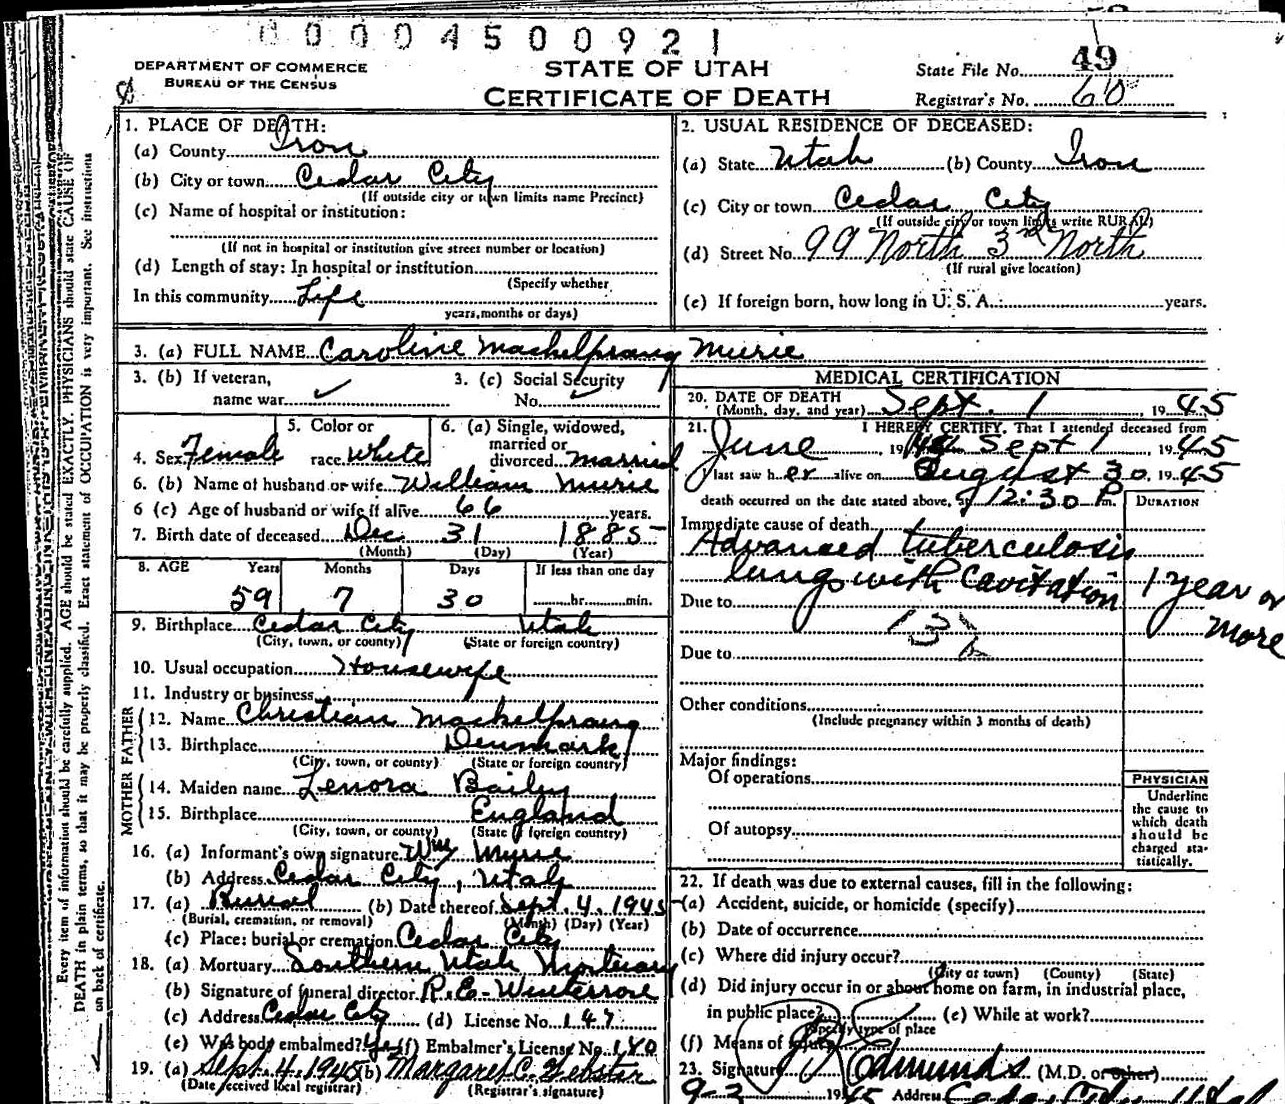 00004500921
DEPARTMENT OF COMMERCE
BUREAU OF THE CENSUS
STATE OF UTAH
CERTIFICATE OF DEATH
State File No. 49
Registrar's No. 60
Every item of information should be carefully supplied. AGE should be stated EXACTLY. PHYSICIANS should state CAUSE OF
DEATH in plain terms, so that it may be properly classified. Exact statement of OCCUPATION is very important. See instructions
on back of certificate.
1. PLACE OF DEATH:
(a) County Iron
(b) City or town Cedar City
(If outside city or town limits name Precinct)
(c) Name of hospital or institution:
(If not in hospital or institution give street number or location)
(d) Length of stay: In hospital or institution
(Specify whether
In this community Life
years, months or days)
2. USUAL RESIDENCE OF DECEASED:
(a) State Utah (b) County Iron
(c) City or town Cedar City
(If outside city or town limits write RURAL)
(d) Street No. 99 North 3rd North
(If rural give location)
(e) If foreign born, how long in U. S. A.: years.
3. (a) FULL NAME Caroline Mackelprang Murie
3. (b) If veteran, name war
3. (c) Social Security No.
4. Sex Female
5. Color or race White
6. (a) Single, widowed, married or divorced married
6. (b) Name of husband or wife William Murie
6 (c) Age of husband or wife if alive 66 years.
7. Birth date of deceased Dec 31 1885
(Month) (Day) (Year)
8. AGE Years Months Days If less than one day
59 7 30 hr. min.
9. Birthplace Cedar City Utah
(City, town, or county) (State or foreign country)
10. Usual occupation Housewife
11. Industry or business
FATHER
12. Name Christian Mackelprang
13. Birthplace Denmark
(City, town, or county) (State or foreign country)
MOTHER
14. Maiden name Lenora Bailey
15. Birthplace England
(City, town, or county) (State or foreign country)
16. (a) Informant's own signature Wm Murie
(b) Address Cedar City, Utah
17. (a) Burial (b) Date thereof Sept. 4, 1945
(Burial, cremation, or removal) (Month) (Day) (Year)
(c) Place: burial or cremation Cedar City
18. (a) Mortuary Southern Utah Mortuary
(b) Signature of funeral director R. E. Winterrose
(c) Address Cedar City (d) License No. 147
(e) Was body embalmed? Yes (f) Embalmer's License No. 180
19. (a) Sept. 4, 1945 (b) Margaret C. Webster
(Date received local registrar) (Registrar's signature)
MEDICAL CERTIFICATION
20. DATE OF DEATH
(Month, day, and year) Sept. 1, 1945
21. I HEREBY CERTIFY, That I attended deceased from
June, 19 Sept 1 1945
I last saw her alive on August 30, 1945
death occurred on the date stated above, at 12:30 P.
DURATION
Immediate cause of death
Advanced tuberculosis
lungs with Cavitation 1 year or
more
Due to
13b
Due to
Other conditions
(Include pregnancy within 3 months of death)
Major findings:
Of operations
Of autopsy
PHYSICIAN
Underline
the cause to
which death
should be
charged sta-
tistically.
22. If death was due to external causes, fill in the following:
(a) Accident, suicide, or homicide (specify)
(b) Date of occurrence
(c) Where did injury occur?
(City or town) (County) (State)
(d) Did injury occur in or about home on farm, in industrial place,
in public place? (e) While at work?
(Specify type of place
(f) Means of injury
23. Signature Edmunds (M.D. or other)
9-3 1945 Address Cedar City Utah